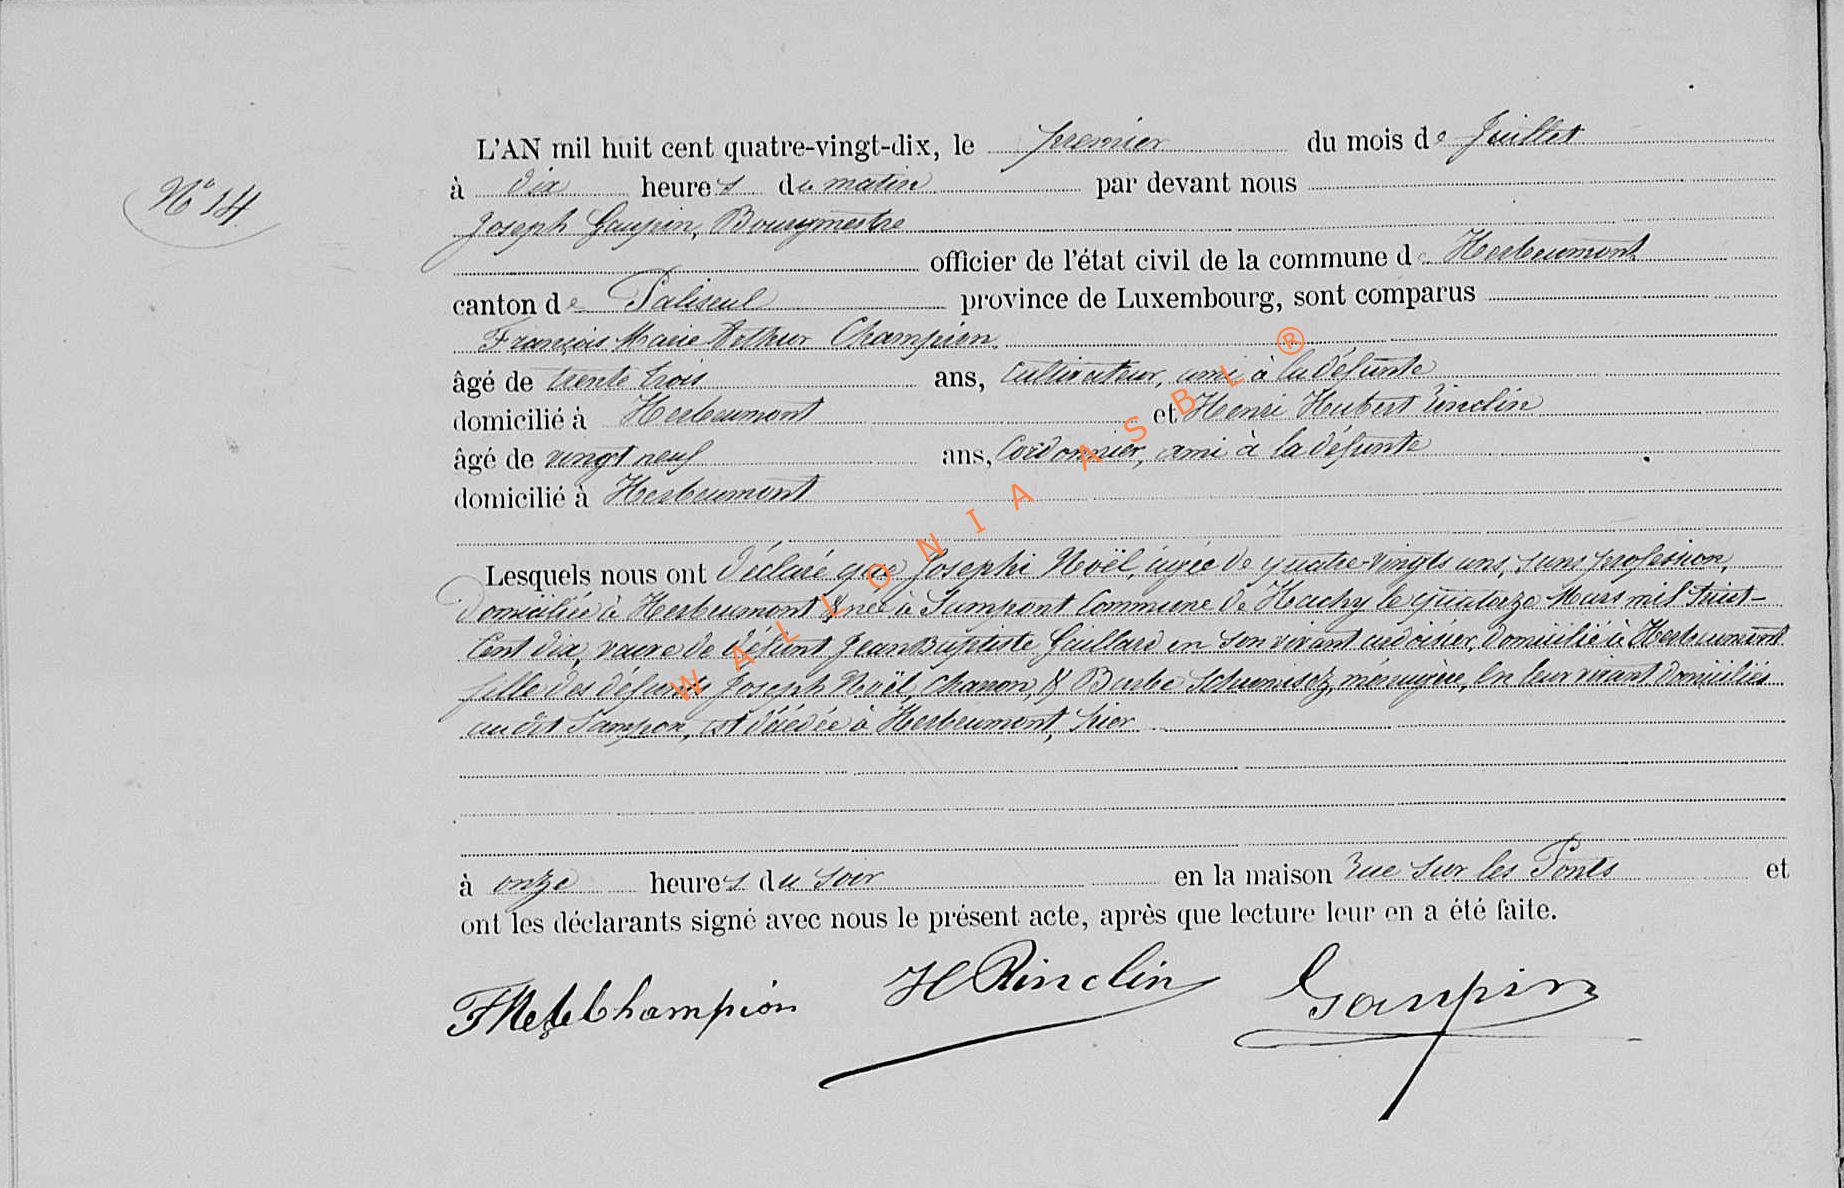 N° 14
L'AN mil huit cent quatre-vingt-dix, le premier du mois de Juillet
à dix heures du matin par devant nous
Joseph Gaupin, Bourgmestre
officier de l'état civil de la commune de Herbeumont
canton de Paliseul province de Luxembourg, sont comparus
François Marie Arthur Champion,
âgé de trente trois ans, Cultivateur, ami à la défunte
domicilié à Herbeumont et Henri Hubert Rinclin
âgé de vingt neuf ans, Cordonnier, ami à la défunte
domicilié à Herbeumont
Lesquels nous ont déclaré que Josephe Noël, âgée de quatre-vingts ans, sans profession,
domiciliée à Herbeumont & née à Sampont Commune de Hachy le quatorze Mars mil huit-
Cent dix, veuve de défunt Jean Baptiste Guillard en son vivant ardoisier, domicilié à Herbeumont
fille des défunts Joseph Noël, charron, & Barbe ménagère, en leur vivant domiciliés
au dit Sampon, est décédée à Herbeumont, hier
à onze heures du soir en la maison rue sur les Ponts et
ont les déclarants signé avec nous le présent acte, après que lecture leur en a été faite.
Champion H Rinclin Gaupin
WALLONIA ASBL ®